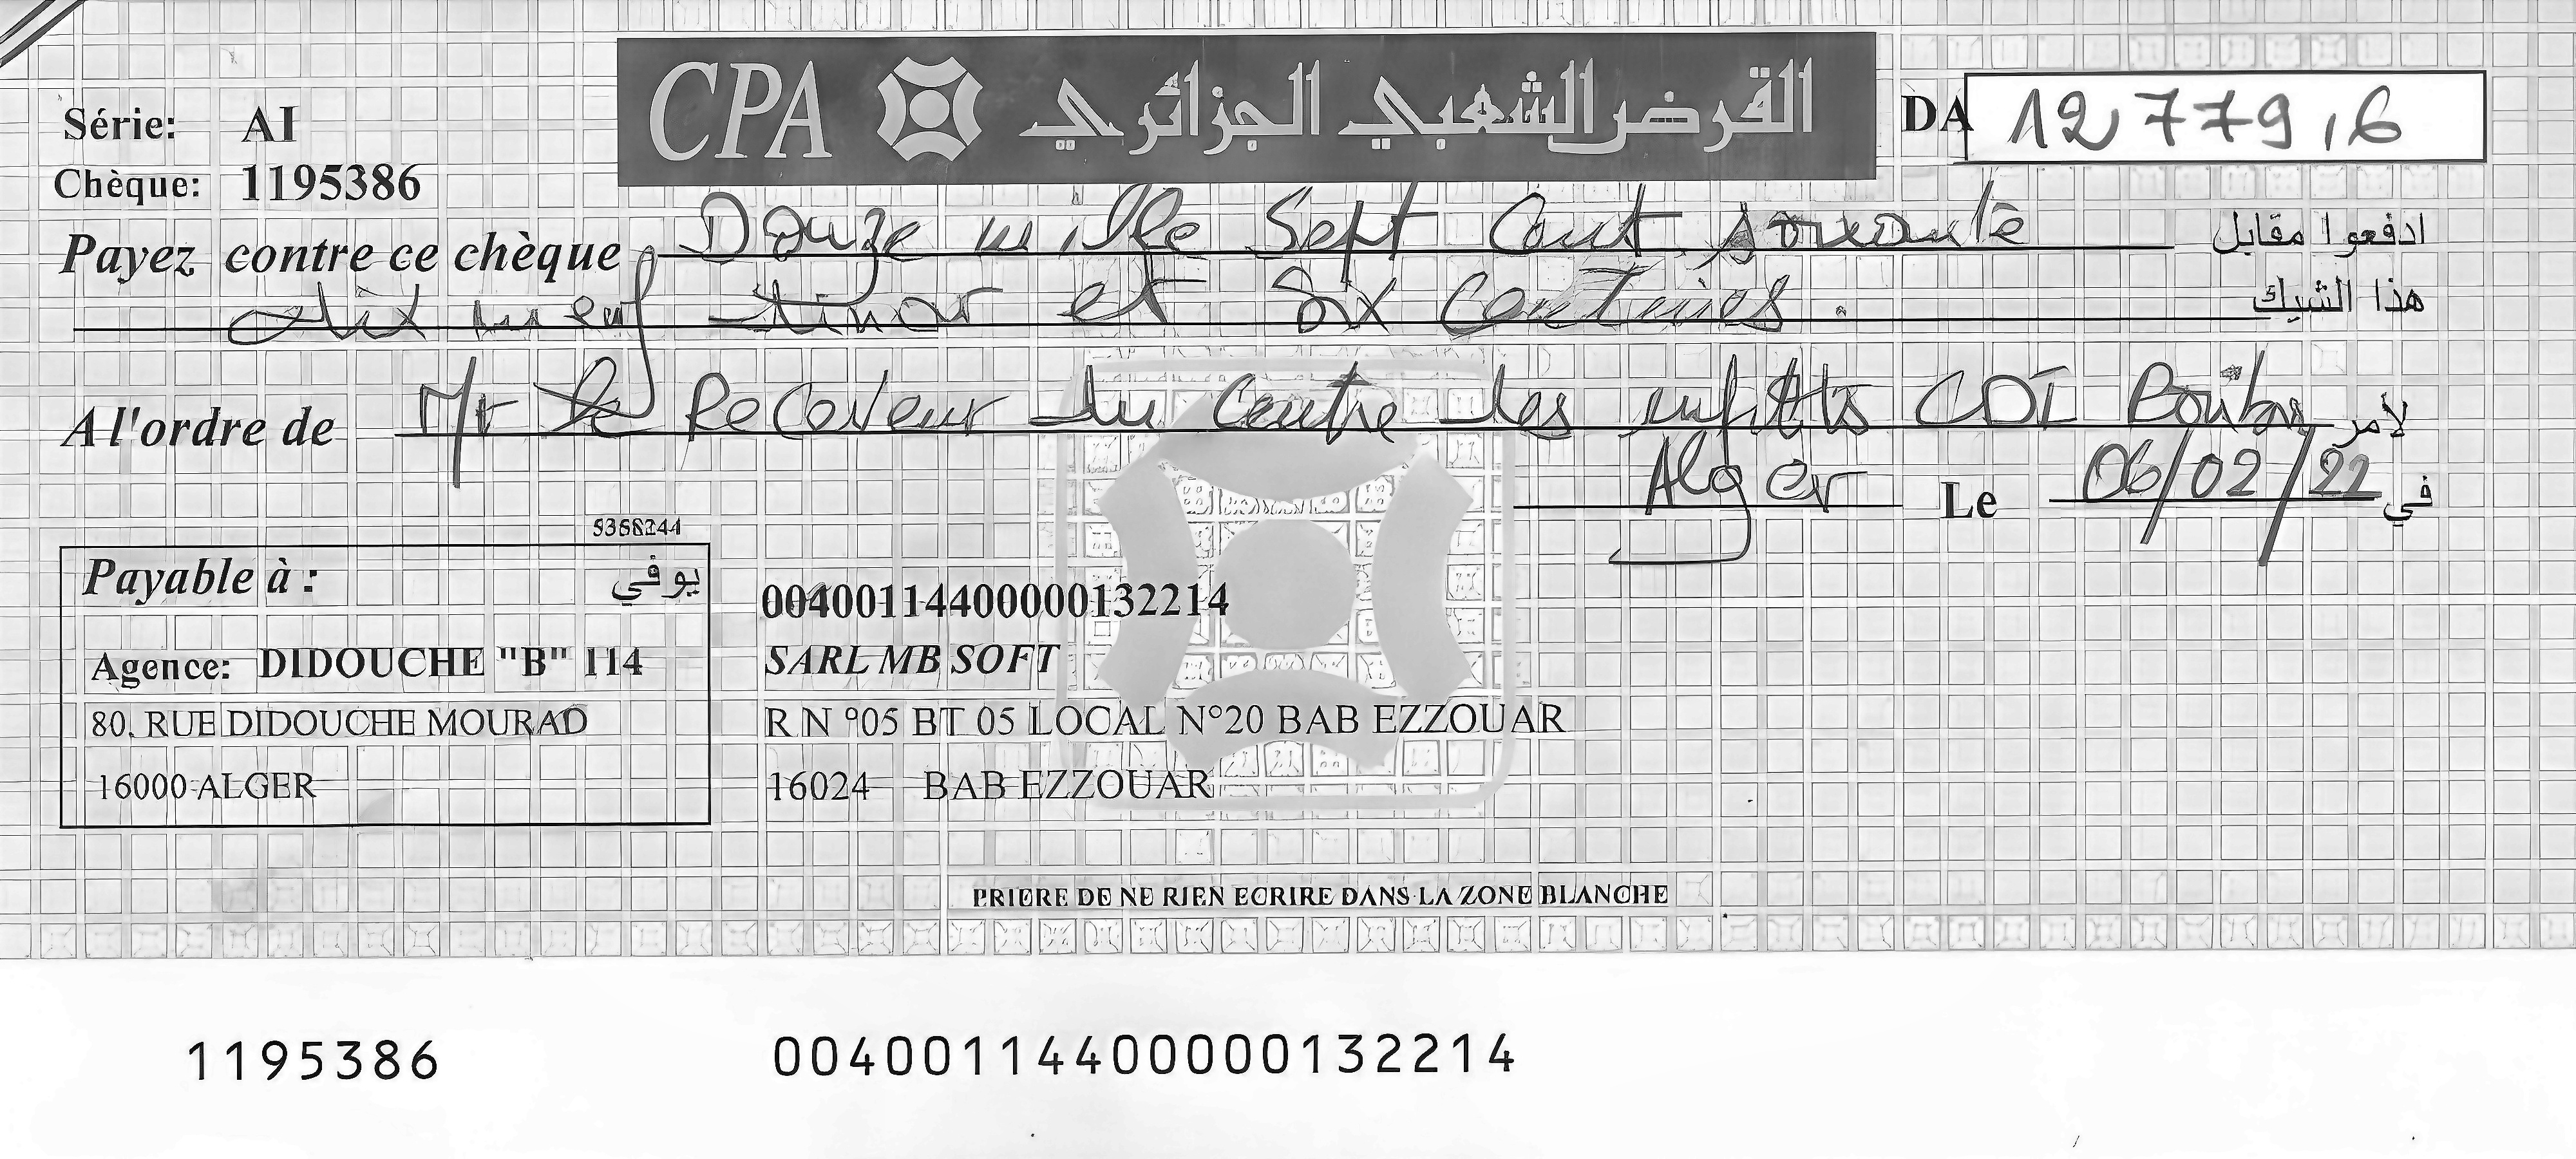 CPA القرض الشعبي الجزائري
Série: AI
DA 12779,6
Chèque: 1195386
Payez contre ce chèque Douze mille Sept Cent soixante ادفعوا مقابل
dix neuf dinar et Six Centimes. هذا الشيك
A l'ordre de Mr le Receveur du Centre des CDI لأمر
Alger Le 06/02/22 في
9368244
Payable à : يوفي
Agence: DIDOUCHE "B" 114
80, RUE DIDOUCHE MOURAD
16000 ALGER
00400114400000132214
SARL MB SOFT
R N °05 BT 05 LOCAL N°20 BAB EZZOUAR
16024 BAB EZZOUAR
PRIERE DE NE RIEN ECRIRE DANS LA ZONE BLANCHE
1195386 00400114400000132214